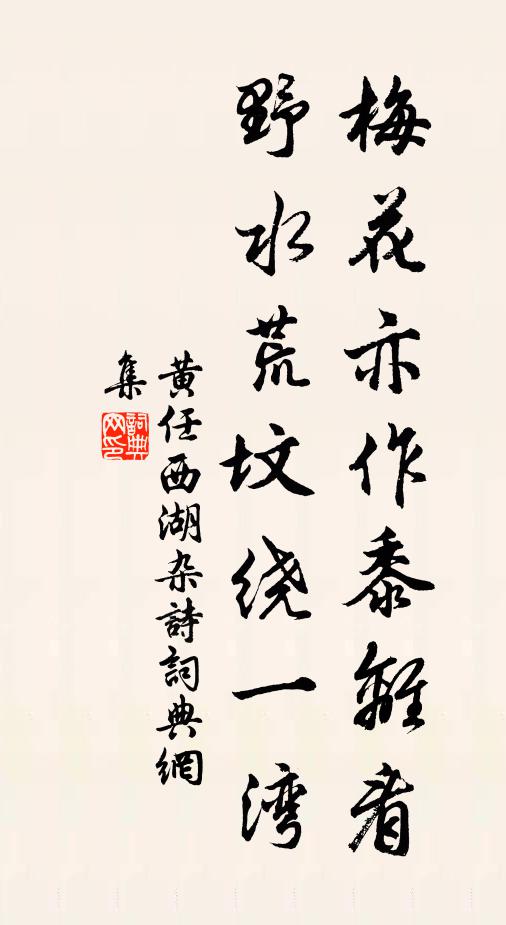 梅花亦作黍離看
野水荒坟绕一湾
黄任西湖杂詩詞典網
集
詞典
网印